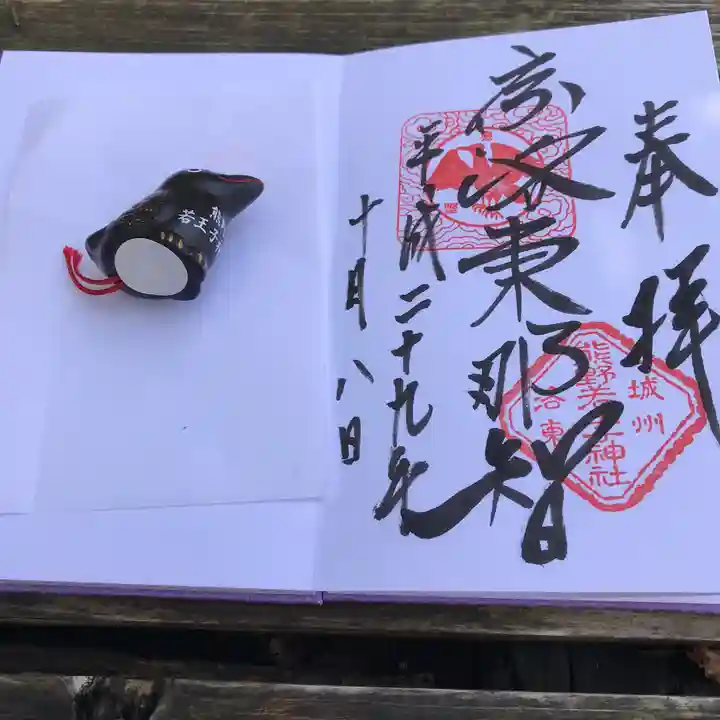 奉拝
京洛東那智
平成二十九年
十月八日
城州
熊野若王子神社
洛東
熊
若王子